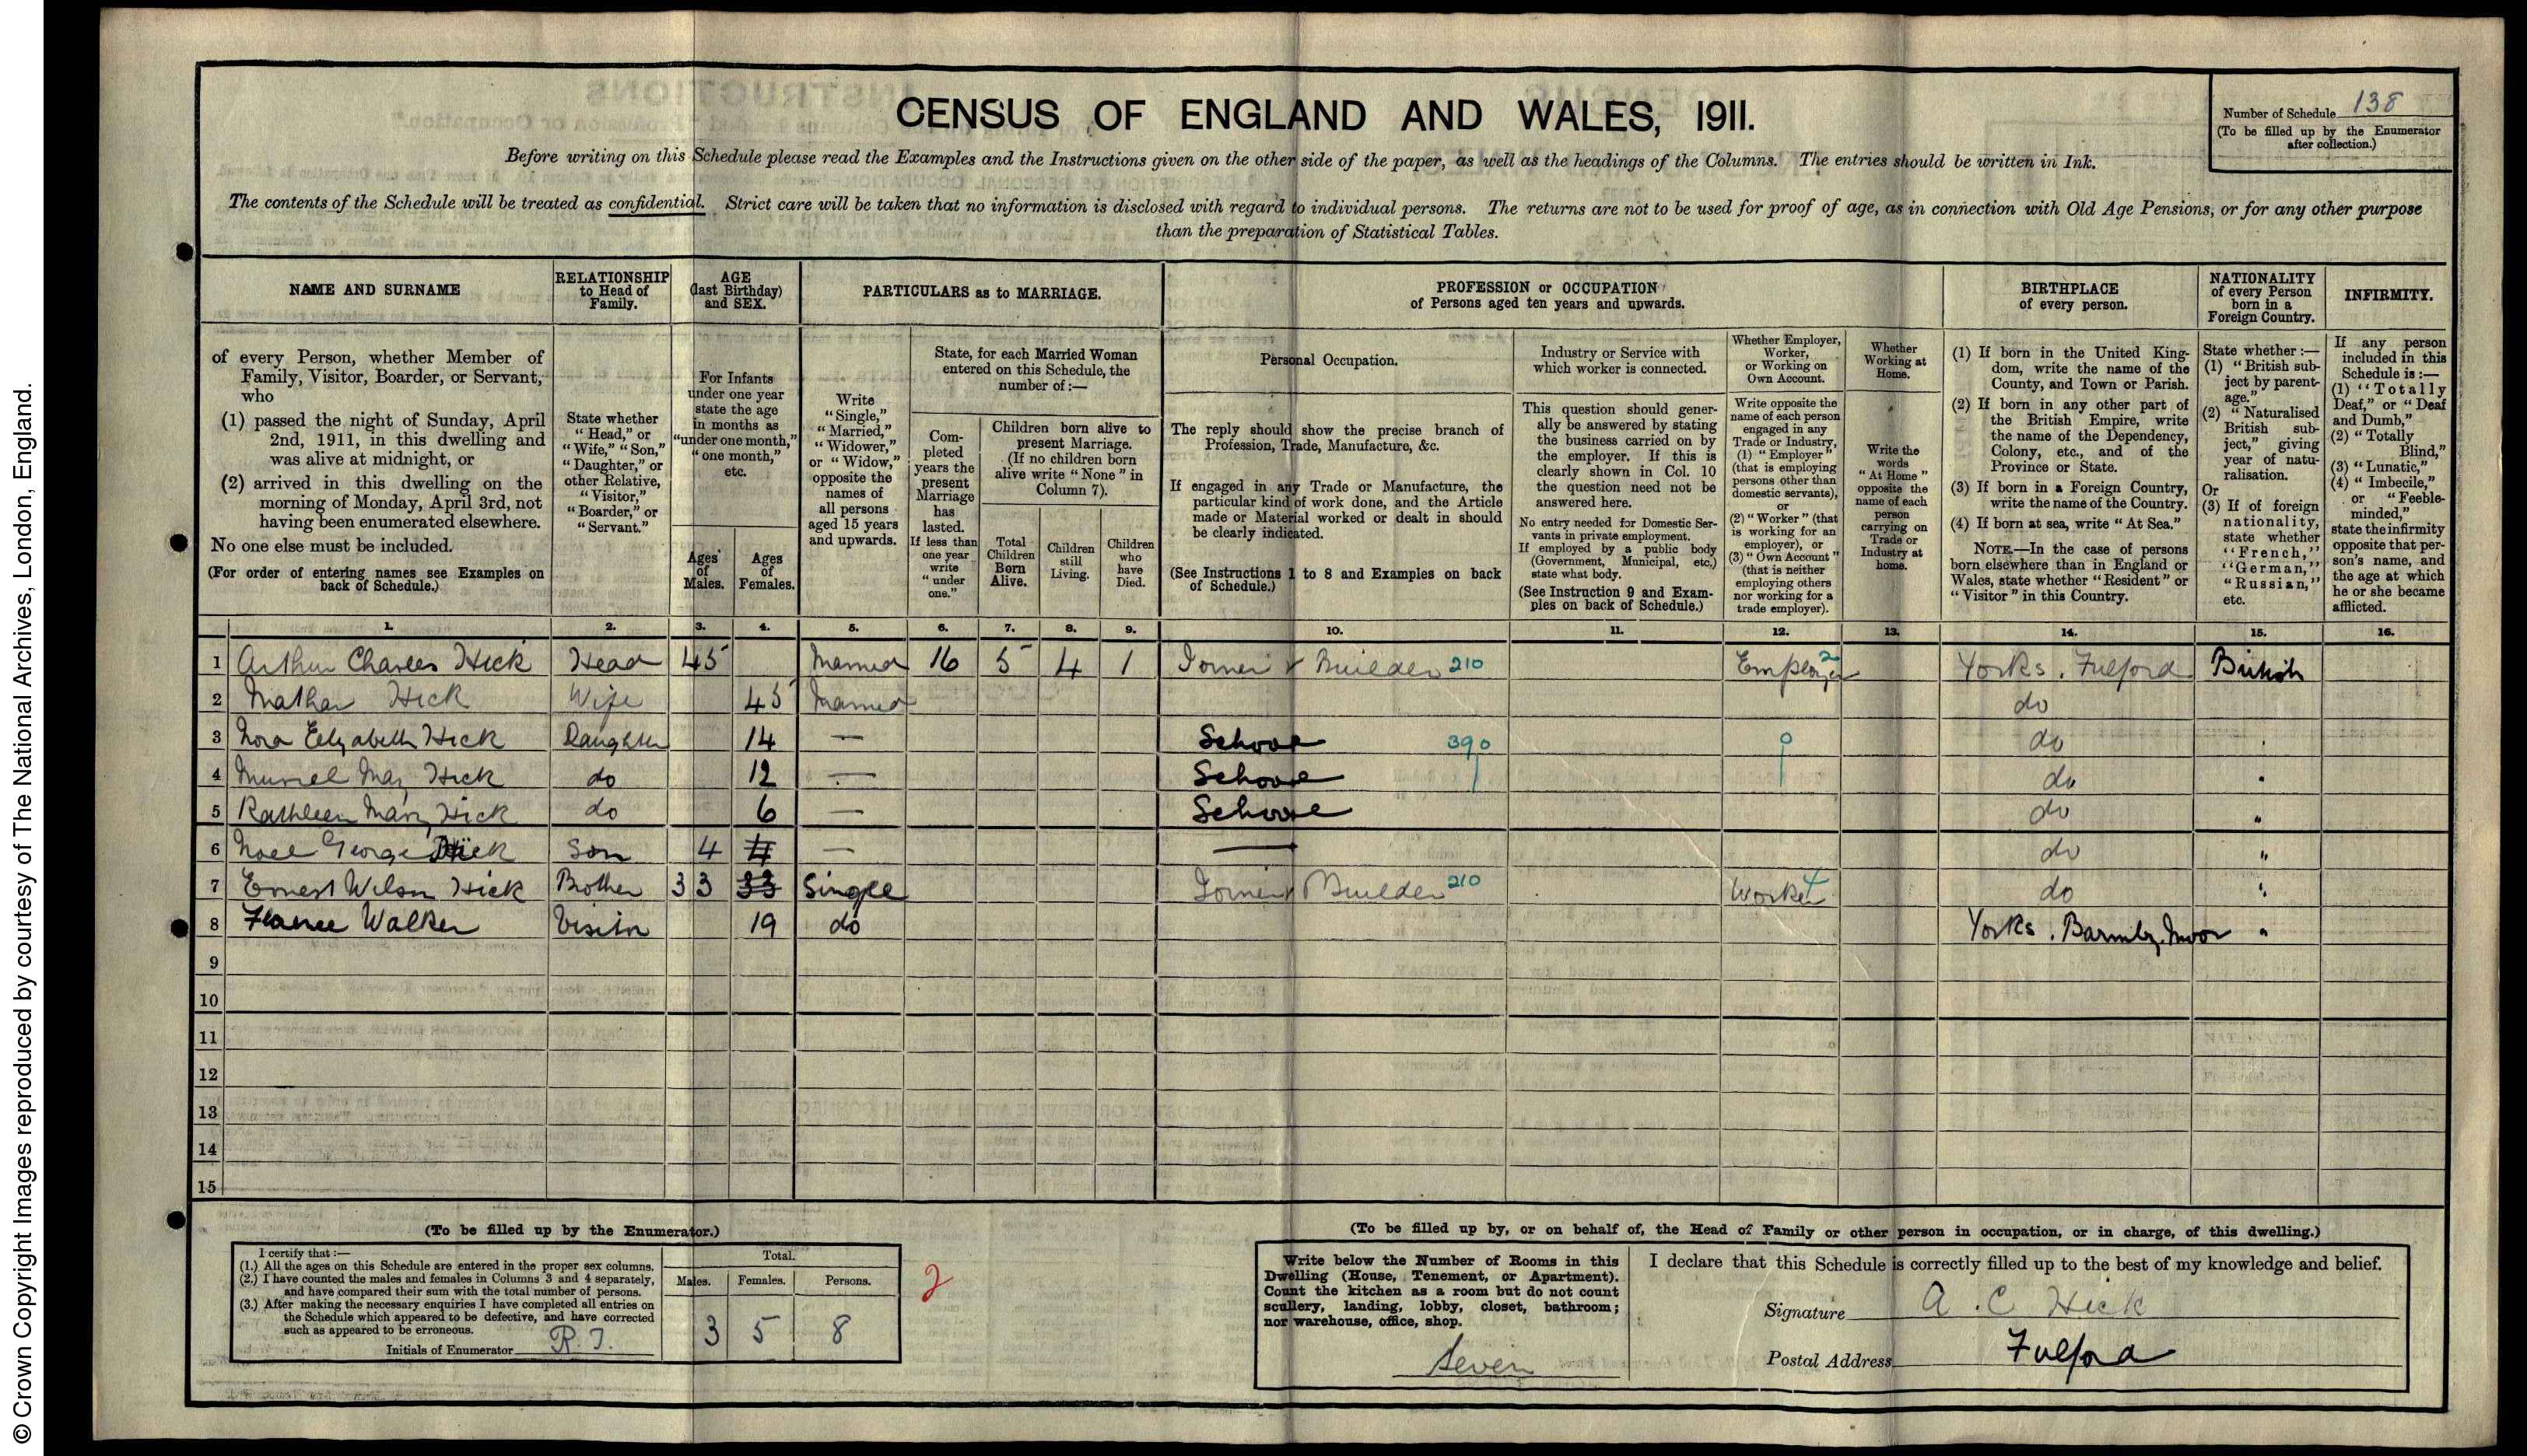 © Crown Copyright Images reproduced by courtesy of The National Archives, London, England.
CENSUS OF ENGLAND AND WALES, 1911.
Number of Schedule 138
(To be filled up by the Enumerator
after collection.)
Before writing on this Schedule please read the Examples and the Instructions given on the other side of the paper, as well as the headings of the Columns. The entries should be written in Ink.
The contents of the Schedule will be treated as confidential. Strict care will be taken that no information is disclosed with regard to individual persons. The returns are not to be used for proof of age, as in connection with Old Age Pensions, or for any other purpose
than the preparation of Statistical Tables.
NAME AND SURNAME
of every Person, whether Member of
Family, Visitor, Boarder, or Servant,
who
(1) passed the night of Sunday, April
2nd, 1911, in this dwelling and
was alive at midnight, or
(2) arrived in this dwelling on the
morning of Monday, April 3rd, not
having been enumerated elsewhere.
No one else must be included.
(For order of entering names see Examples on
back of Schedule.)
RELATIONSHIP
to Head of
Family.
State whether
"Head," or
"Wife," "Son,"
"Daughter," or
other Relative,
"Visitor,"
"Boarder," or
"Servant."
AGE
(last Birthday)
and SEX.
For Infants
under one year
state the age
in months as
"under one month,"
"one month,"
etc.
Ages
of
Males.
Ages
of
Females.
PARTICULARS as to MARRIAGE.
Write
"Single,"
"Married,"
"Widower,"
or "Widow,"
opposite the
names of
all persons
aged 15 years
and upwards.
State, for each Married Woman
entered on this Schedule, the
number of:—
Com-
pleted
years the
present
Marriage
has
lasted.
If less than
one year
write
"under
one."
Children born alive to
present Marriage.
(If no children born
alive write "None" in
Column 7).
Total
Children
Born
Alive.
Children
still
Living.
Children
who
have
Died.
PROFESSION or OCCUPATION
of Persons aged ten years and upwards.
Personal Occupation.
The reply should show the precise branch of
Profession, Trade, Manufacture, &c.
If engaged in any Trade or Manufacture, the
particular kind of work done, and the Article
made or Material worked or dealt in should
be clearly indicated.
(See Instructions 1 to 8 and Examples on back
of Schedule.)
Industry or Service with
which worker is connected.
This question should gener-
ally be answered by stating
the business carried on by
the employer. If this is
clearly shown in Col. 10
the question need not be
answered here.
No entry needed for Domestic Ser-
vants in private employment.
If employed by a public body
(Government, Municipal, etc.)
state what body.
(See Instruction 9 and Exam-
ples on back of Schedule.)
Whether Employer,
Worker,
or Working on
Own Account.
Write opposite the
name of each person
engaged in any
Trade or Industry,
(1) "Employer"
(that is employing
persons other than
domestic servants),
or
(2) "Worker" (that
is working for an
employer), or
(3) "Own Account"
(that is neither
employing others
nor working for a
trade employer).
Whether
Working at
Home.
Write the
words
"At Home"
opposite the
name of each
person
carrying on
Trade or
Industry at
home.
BIRTHPLACE
of every person.
(1) If born in the United King-
dom, write the name of the
County, and Town or Parish.
(2) If born in any other part of
the British Empire, write
the name of the Dependency,
Colony, etc., and of the
Province or State.
(3) If born in a Foreign Country,
write the name of the Country.
(4) If born at sea, write "At Sea."
NOTE.—In the case of persons
born elsewhere than in England or
Wales, state whether "Resident" or
"Visitor" in this Country.
NATIONALITY
of every Person
born in a
Foreign Country.
State whether:—
(1) "British sub-
ject by parent-
age."
(2) "Naturalised
British sub-
ject," giving
year of natu-
ralisation.
Or
(3) If of foreign
nationality,
state whether
"French,"
"German,"
"Russian,"
etc.
INFIRMITY.
If any person
included in this
Schedule is:—
(1) "Totally
Deaf," or "Deaf
and Dumb,"
(2) "Totally
Blind,"
(3) "Lunatic,"
(4) "Imbecile,"
or "Feeble-
minded,"
state the infirmity
opposite that per-
son's name, and
the age at which
he or she became
afflicted.
1. 2. 3. 4. 5. 6. 7. 8. 9. 10. 11. 12. 13. 14. 15. 16.
1 Arthur Charles Hick Head 45 Married 16 5 4 1 Joiner & Builder 210 Employer 2 Yorks. Fulford British
2 Hick Wife 45 Married do
3 Nora Elizabeth Hick Daughter 14 — School 390 0 do "
4 Muriel May Hick do 12 — School do "
5 Kathleen Mary Hick do 6 — School do "
6 Noel George Hick Son 4 4 — — do "
7 Ernest Wilson Hick Brother 33 33 Single Joiner & Builder 210 Worker 4 do "
8 Walker Visitor 19 do Yorks. Barmby Moor "
9
10
11
12
13
14
15
(To be filled up by the Enumerator.)
I certify that:—
(1.) All the ages on this Schedule are entered in the proper sex columns.
(2.) I have counted the males and females in Columns 3 and 4 separately,
and have compared their sum with the total number of persons.
(3.) After making the necessary enquiries I have completed all entries on
the Schedule which appeared to be defective, and have corrected
such as appeared to be erroneous.
Initials of Enumerator
Total.
Males. Females. Persons.
3 5 8
2
(To be filled up by, or on behalf of, the Head of Family or other person in occupation, or in charge, of this dwelling.)
Write below the Number of Rooms in this
Dwelling (House, Tenement, or Apartment).
Count the kitchen as a room but do not count
scullery, landing, lobby, closet, bathroom;
nor warehouse, office, shop.
Seven
I declare that this Schedule is correctly filled up to the best of my knowledge and belief.
Signature A. C Hick
Postal Address Fulford